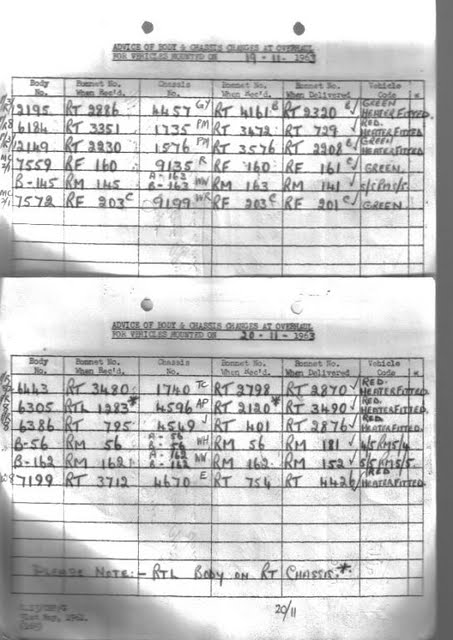 ADVICE OF BODY & CHASSIS CHANGES AT OVERHAUL
FOR VEHICLES MOUNTED ON 19-11-1963
Body No. Bonnet No. When Rec'd. Chassis No. Bonnet No. When Rec'd. Bonnet No. When Delivered Vehicle Code *
2195 RT 2886 4457 GY RT 4161 B RT 2320 B ✓ GREEN HEATER FITTED.
6184 RT 3351 1735 PM RT 3472 RT 729 ✓ RED. HEATER FITTED.
2149 RT 2230 1576 PM RT 3576 RT 2208 ✓ GREEN HEATER FITTED
7559 RF 160 9135 R RF 160 RF 161 C ✓ GREEN.
B-145 RM 145 A-163 B-163 RM 163 RM 141 ✓ 5/5 RM 5/5.
7572 RF 203 C 9199 WR RF 203 C RF 201 C ✓ GREEN
ADVICE OF BODY & CHASSIS CHANGES AT OVERHAUL
FOR VEHICLES MOUNTED ON 20-11-1963
Body No. Bonnet No. When Rec'd. Chassis No. Bonnet No. When Rec'd. Bonnet No. When Delivered Vehicle Code *
6443 RT 3480 1740 TC RT 2798 RT 2870 ✓ RED. HEATER FITTED.
6305 RTL 1283* 4596 AP RT 2120* RT 3490 ✓ RED. HEATER FITTED.
6386 RT 795 4549 RT 401 RT 2876 ✓ RED. HEATER FITTED.
B-56 RM 56 A-56 B-56 WH RM 56 RM 181 ✓ RM 5/4
B-162 RM 162 A-162 B-162 RM 162 RM 152 ✓ 5/5 RM 5/5.
7199 RT 3712 4670 E RT 754 RT 442 RED. HEATER FITTED.
PLEASE NOTE:- RTL BODY ON RT CHASSIS.*
20/11